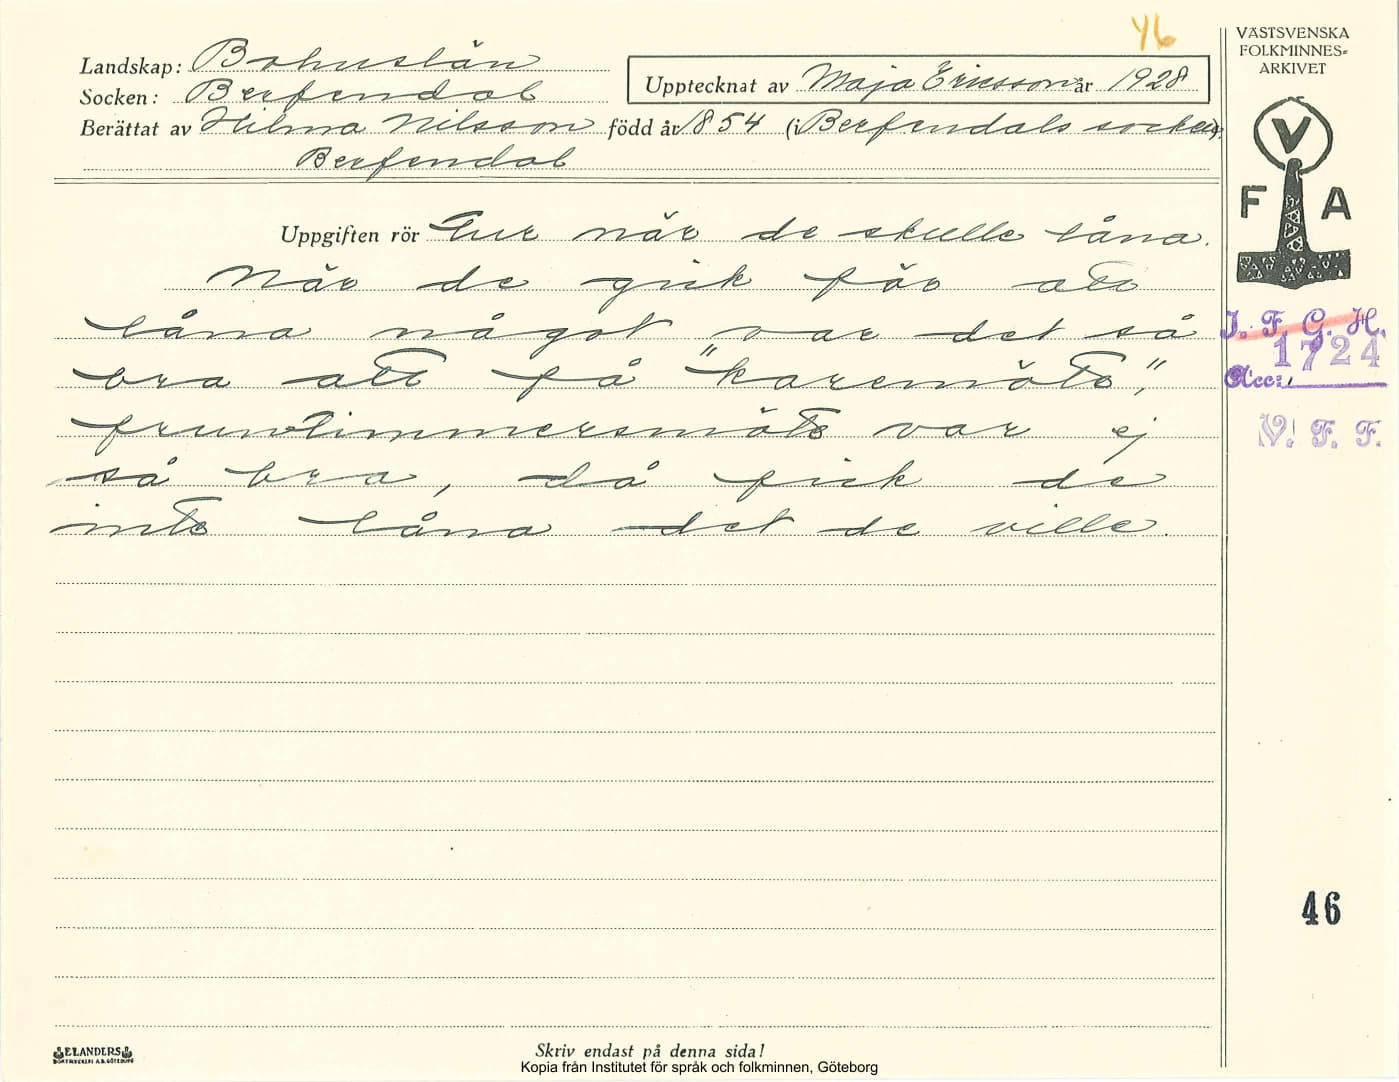 46
VÄSTSVENSKA
FOLKMINNES=
ARKIVET
Landskap: Bohuslän
Socken: Berfendal
Upptecknat av Maja Ericsson år 1928
Berättat av Hilma Nilsson född år 1854 (i Berfendals socken).
Berfendal
V
F A
Uppgiften rör Tur när de skulle låna.
När de gick för att
låna något var det så
bra att få "karemöte",
fruntimmersmöte var ej
så bra, då fick de
inte låna det de ville.
I. F. G. H.
1724
Acc:
V. F. F.
46
ELANDERS
BOKTRYCKERI A.B. GÖTEBORG
Skriv endast på denna sida!
Kopia från Institutet för språk och folkminnen, Göteborg